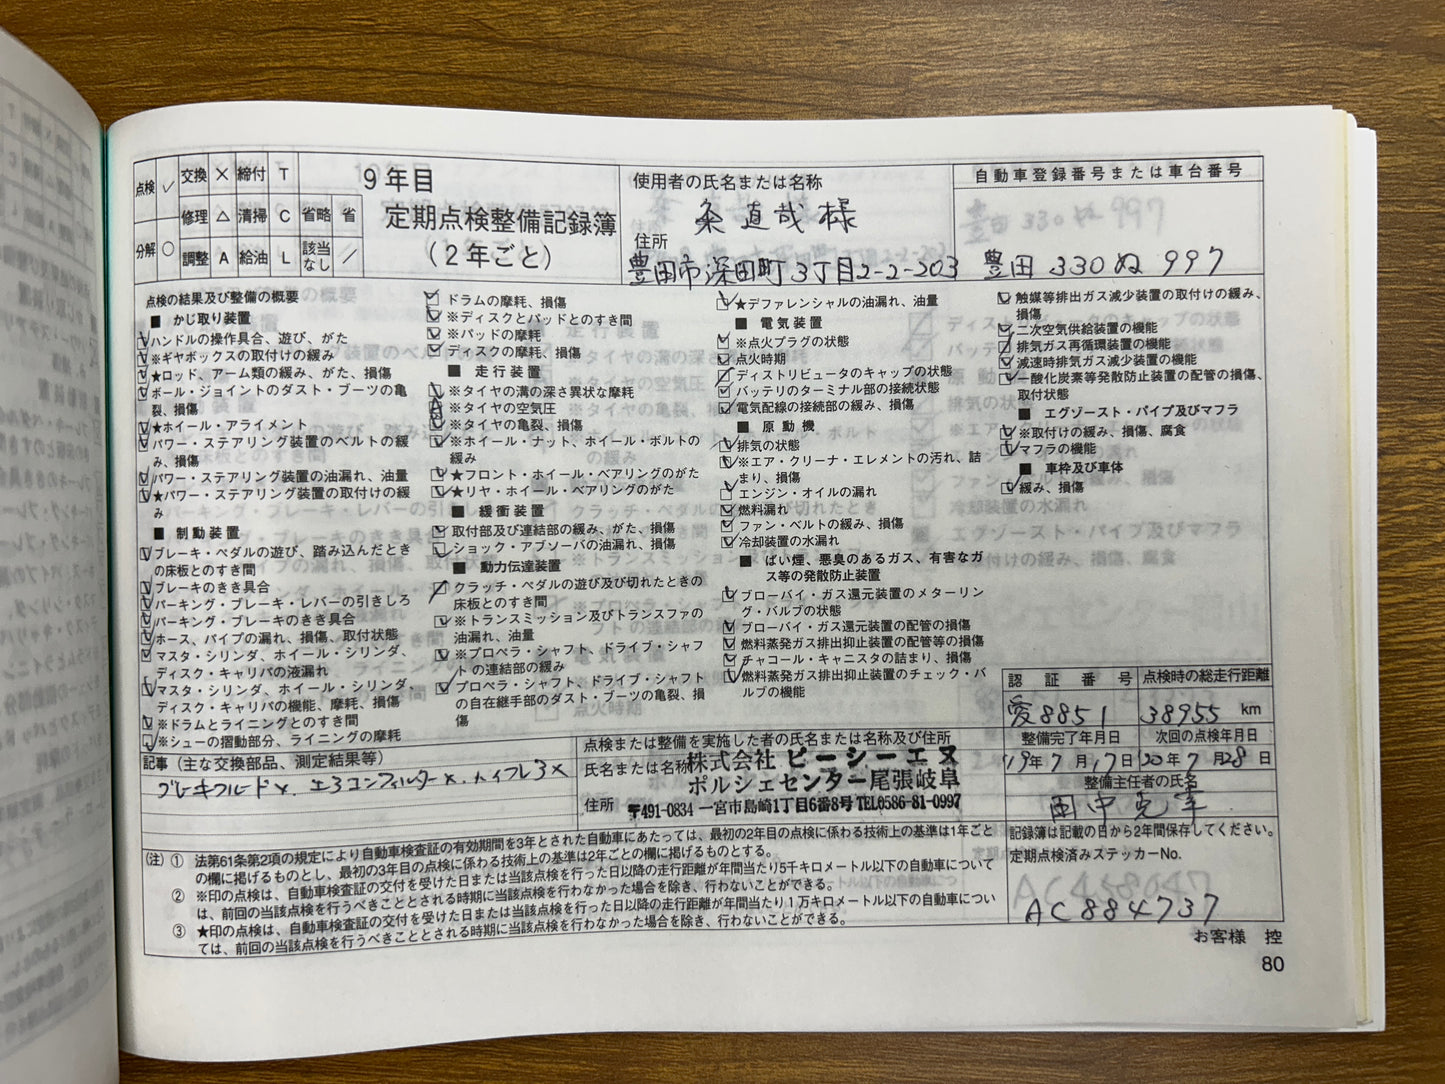 点検 ✓ 交換 × 締付 T
修理 △ 清掃 C 省略 省
分解 ○ 調整 A 給油 L 該当なし ／
9年目
定期点検整備記録簿
（2年ごと）
使用者の氏名または名称
条 直哉 様
住所
豊田市深田町3丁目2-2-203
自動車登録番号または車台番号
豊田 330 ぬ 997
点検の結果及び整備の概要
■ かじ取り装置
ハンドルの操作具合、遊び、がた
※ギヤボックスの取付けの緩み
★ロッド、アーム類の緩み、がた、損傷
ボール・ジョイントのダスト・ブーツの亀
裂、損傷
★ホイール・アライメント
パワー・ステアリング装置のベルトの緩
み、損傷
パワー・ステアリング装置の油漏れ、油量
★パワー・ステアリング装置の取付けの緩
み
■ 制動装置
ブレーキ・ペダルの遊び、踏み込んだとき
の床板とのすき間
ブレーキのきき具合
パーキング・ブレーキ・レバーの引きしろ
パーキング・ブレーキのきき具合
ホース、パイプの漏れ、損傷、取付状態
マスタ・シリンダ、ホイール・シリンダ、
ディスク・キャリパの液漏れ
マスタ・シリンダ、ホイール・シリンダ、
ディスク・キャリパの機能、摩耗、損傷
※ドラムとライニングとのすき間
※シューの摺動部分、ライニングの摩耗
ドラムの摩耗、損傷
※ディスクとパッドとのすき間
※パッドの摩耗
ディスクの摩耗、損傷
■ 走行装置
※タイヤの溝の深さ異状な摩耗
※タイヤの空気圧
※タイヤの亀裂、損傷
※ホイール・ナット、ホイール・ボルトの
緩み
★フロント・ホイール・ベアリングのがた
★リヤ・ホイール・ベアリングのがた
■ 緩衝装置
取付部及び連結部の緩み、がた、損傷
ショック・アブソーバの油漏れ、損傷
■ 動力伝達装置
クラッチ・ペダルの遊び及び切れたときの
床板とのすき間
※トランスミッション及びトランスファの
油漏れ、油量
※プロペラ・シャフト、ドライブ・シャフ
トの連結部の緩み
プロペラ・シャフト、ドライブ・シャフト
の自在継手部のダスト・ブーツの亀裂、損
傷
★デファレンシャルの油漏れ、油量
■ 電気装置
※点火プラグの状態
点火時期
ディストリビュータのキャップの状態
バッテリのターミナル部の接続状態
電気配線の接続部の緩み、損傷
■ 原動機
排気の状態
※エア・クリーナ・エレメントの汚れ、詰
まり、損傷
エンジン・オイルの漏れ
燃料漏れ
ファン・ベルトの緩み、損傷
冷却装置の水漏れ
■ ばい煙、悪臭のあるガス、有害なガ
ス等の発散防止装置
ブローバイ・ガス還元装置のメターリン
グ・バルブの状態
ブローバイ・ガス還元装置の配管の損傷
燃料蒸発ガス排出抑止装置の配管等の損傷
チャコール・キャニスタの詰まり、損傷
燃料蒸発ガス排出抑止装置のチェック・バ
ルブの機能
触媒等排出ガス減少装置の取付けの緩み、
損傷
二次空気供給装置の機能
排気ガス再循環装置の機能
減速時排気ガス減少装置の機能
一酸化炭素等発散防止装置の配管の損傷、
取付状態
■ エグゾースト・パイプ及びマフラ
※取付けの緩み、損傷、腐食
マフラの機能
■ 車枠及び車体
緩み、損傷
記事（主な交換部品、測定結果等）
ブレーキフルードx. エアコンフィルターx. ワイパーブレードx
点検または整備を実施した者の氏名または名称及び住所
氏名または名称 株式会社 ピーシーエヌ
ポルシェセンター尾張岐阜
住所 〒491-0834 一宮市島崎1丁目6番8号 TEL0586-81-0997
認証番号 点検時の総走行距離
愛8851 38955 km
整備完了年月日 次回の点検年月日
19年7月17日 20年7月28日
整備主任者の氏名
田中
記録簿は記載の日から2年間保存してください。
定期点検済みステッカーNo.
AC884737
（注）① 法第61条第2項の規定により自動車検査証の有効期間を3年とされた自動車にあたっては、最初の2年目の点検に係わる技術上の基準は1年ごと
の欄に掲げるものとし、最初の3年目の点検に係わる技術上の基準は2年ごとの欄に掲げるものとする。
② ※印の点検は、自動車検査証の交付を受けた日または当該点検を行った日以降の走行距離が年間当たり5千キロメートル以下の自動車について
は、前回の当該点検を行うべきこととされる時期に当該点検を行わなかった場合を除き、行わないことができる。
③ ★印の点検は、自動車検査証の交付を受けた日または当該点検を行った日以降の走行距離が年間当たり1万キロメートル以下の自動車につい
ては、前回の当該点検を行うべきこととされる時期に当該点検を行わなかった場合を除き、行わないことができる。
お客様 控
80